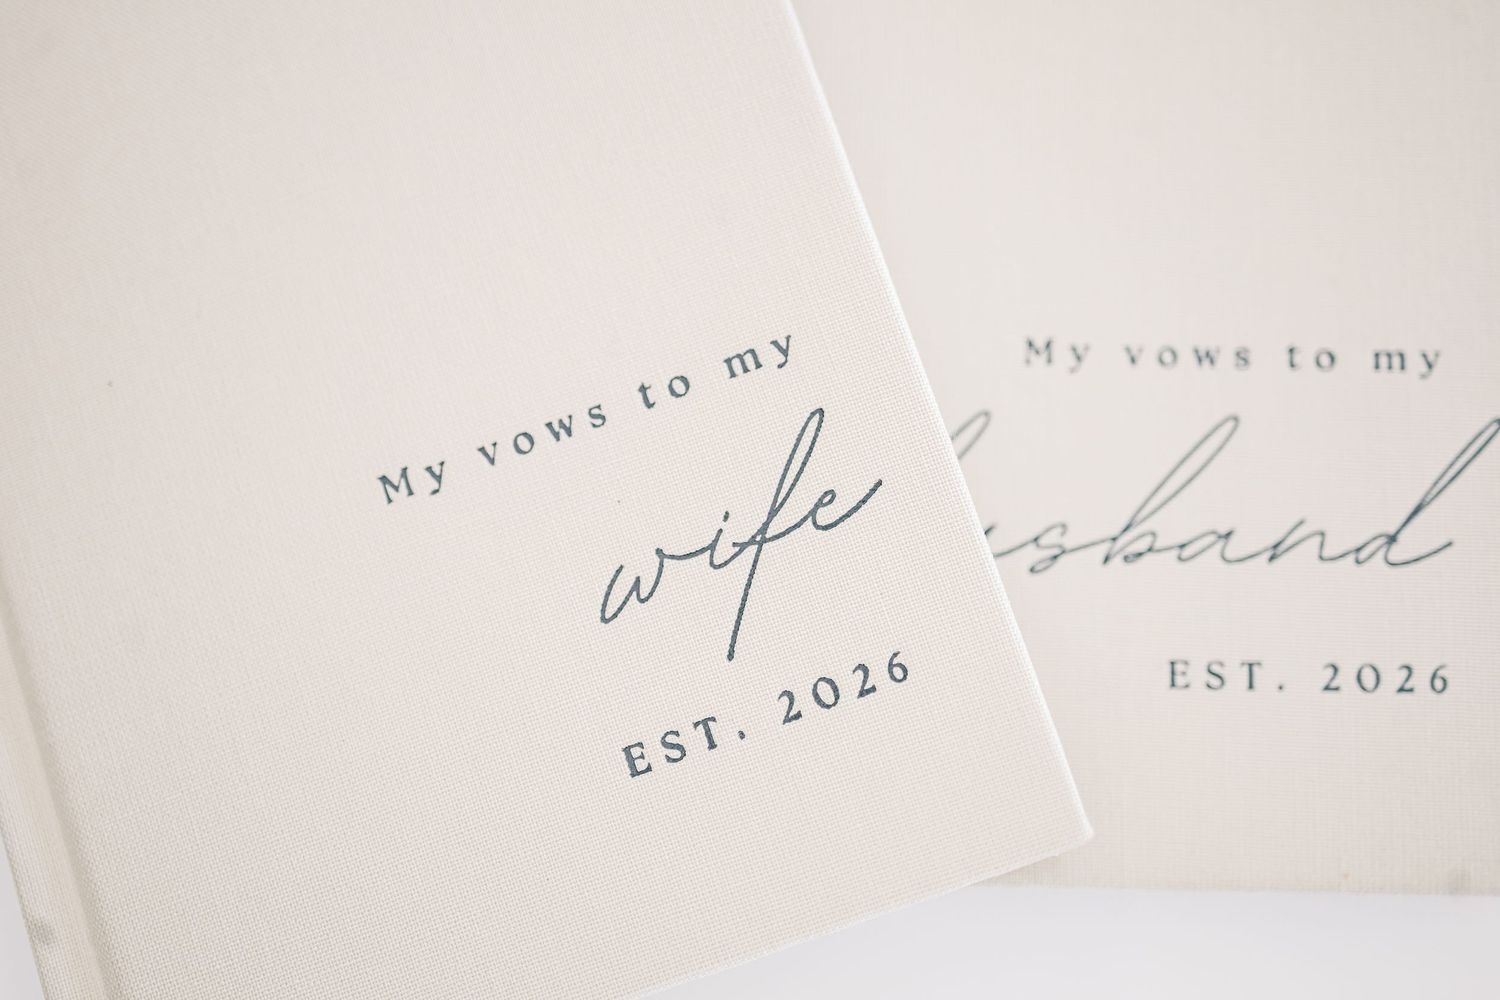 My vows to my
wife
EST. 2026
My vows to my
husband
EST. 2026